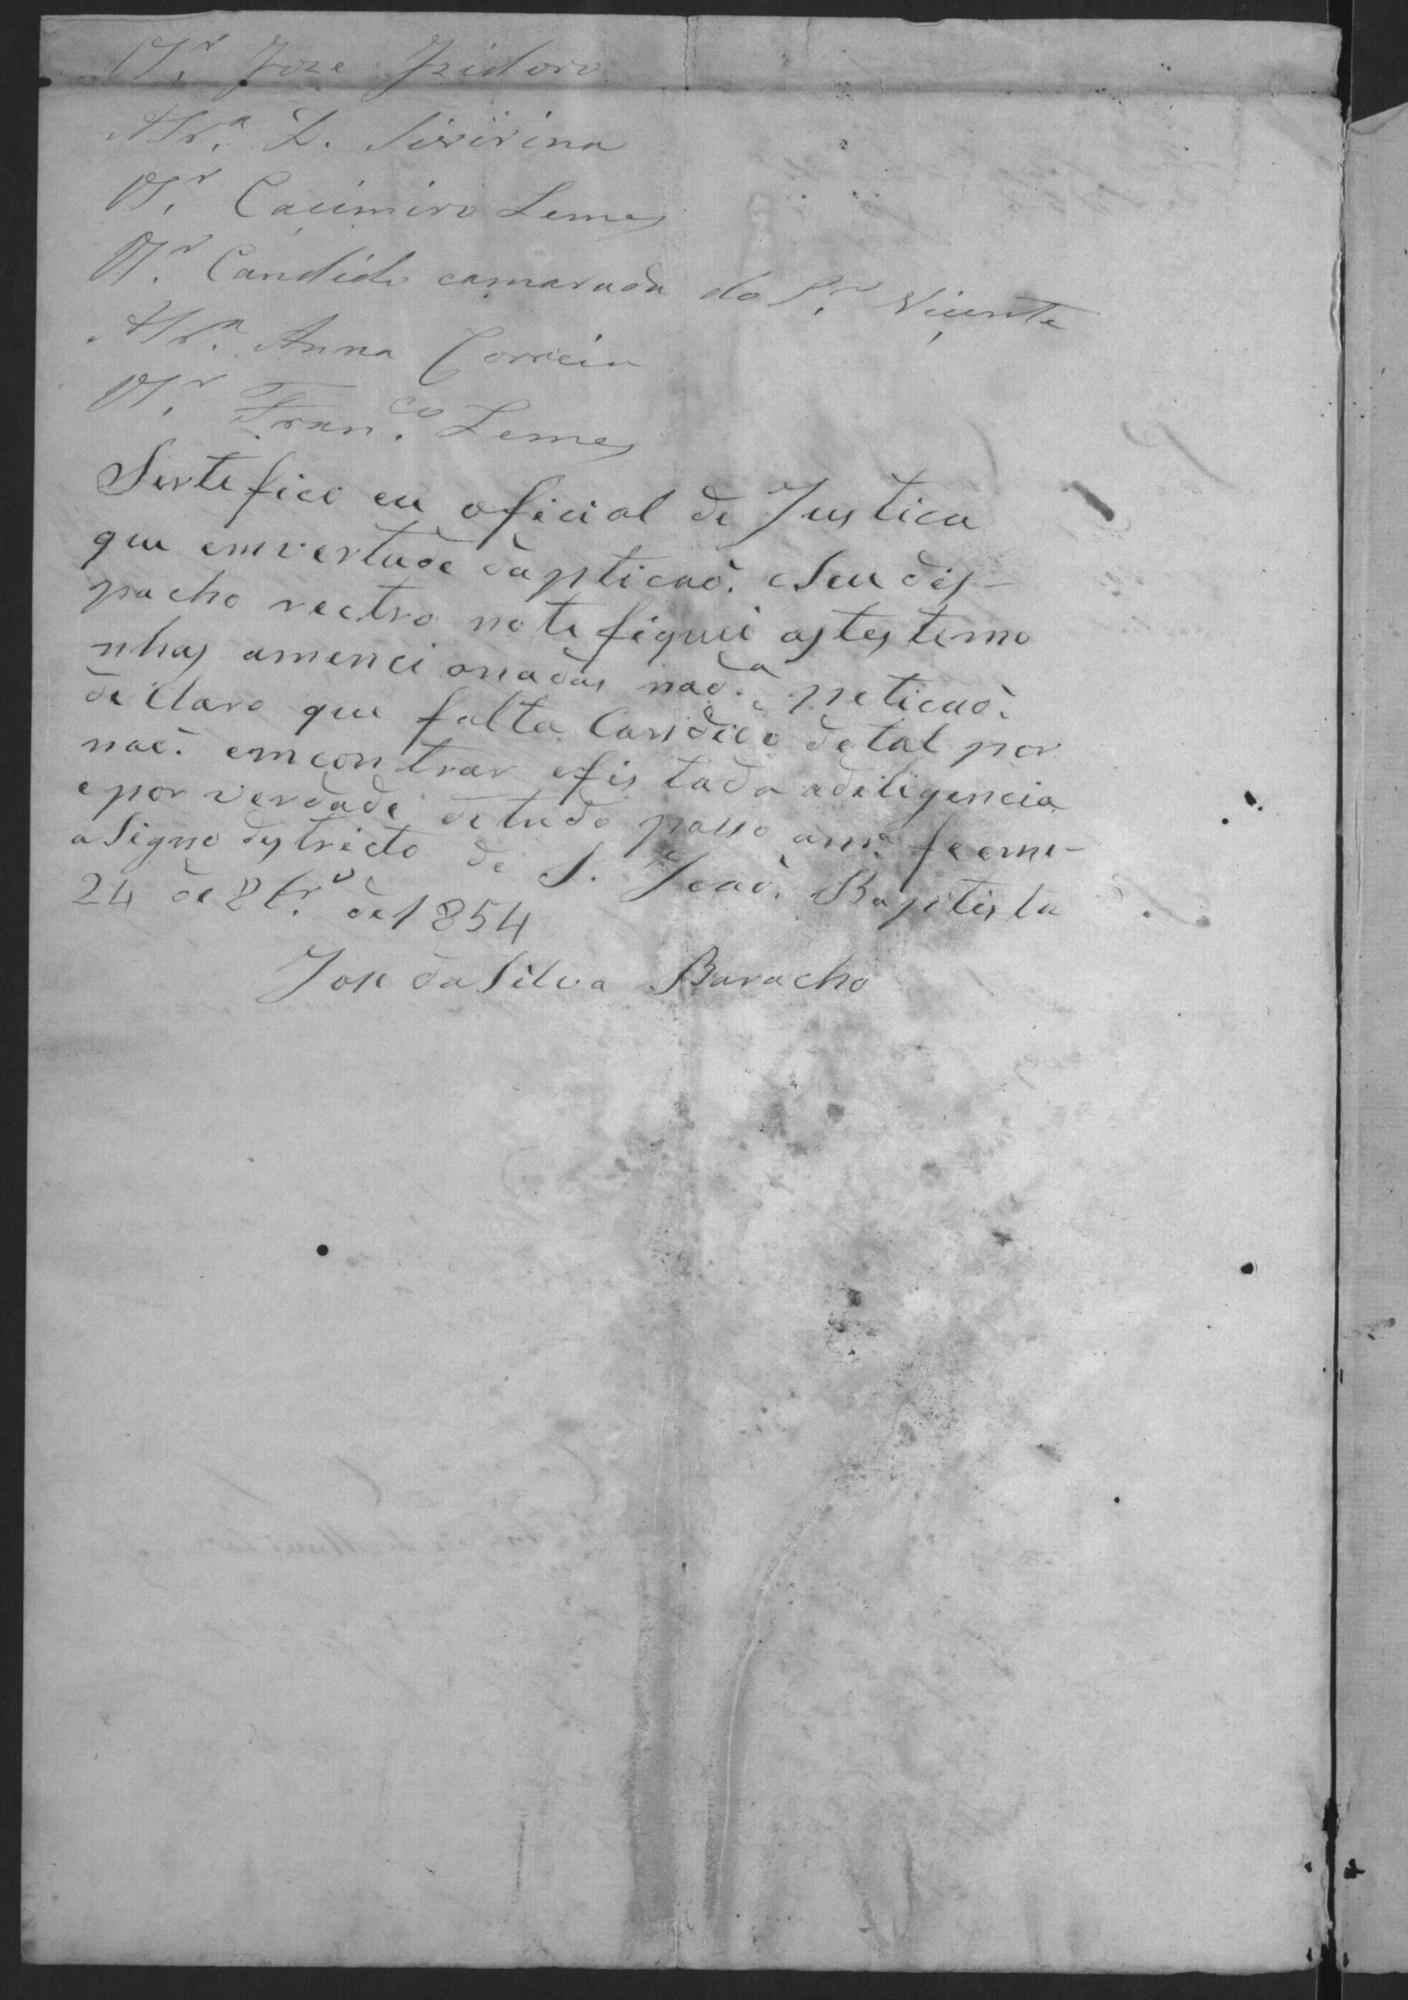 O Sr. Joze Izidoro
A Sr.ª D. Sivirina
O Sr. Casimiro Lemes
O Sr. Candido camarada do Sr. Vicente
A Sr.ª Anna Correia
O Sr. Fran.co Lemes
Sertefico eu oficial de Justica
que emvertude da pticaò. eSeu des-
pacho rectro notefiquei astestemo
nhas amencionadas nad.ª peticaò.
deClaro que falta Candido detal por
naò. emcontrar efis tada adiligencia
epor verdade detudo passo feeme-
aSigno destricto de S. Joaò. Baptista
24 de 8br.o de 1854
Jose daSilva Baracho